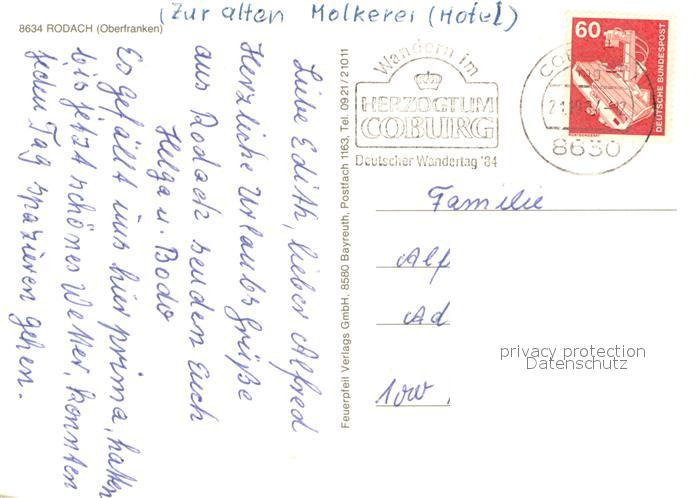 (Zur alten Molkerei (Hotel)
8634 RODACH (Oberfranken)
Liebe Edith, lieber Alfred
Herzliche Urlaubsgrüße
aus Rodach senden Euch
Helga u. Bodo
Es gefällt uns hier prima, hatten
bis jetzt schönes Wetter, konnten
jeden Tag spazieren gehen.
Feuerpfeil Verlags GmbH, 8580 Bayreuth, Postfach 1163, Tel. 0921/21011
Wandern im
HERZOGTUM
COBURG
Deutscher Wandertag '84
8630
60
DEUTSCHE BUNDESPOST
Familie
Alf
Ad
1000
privacy protection
Datenschutz